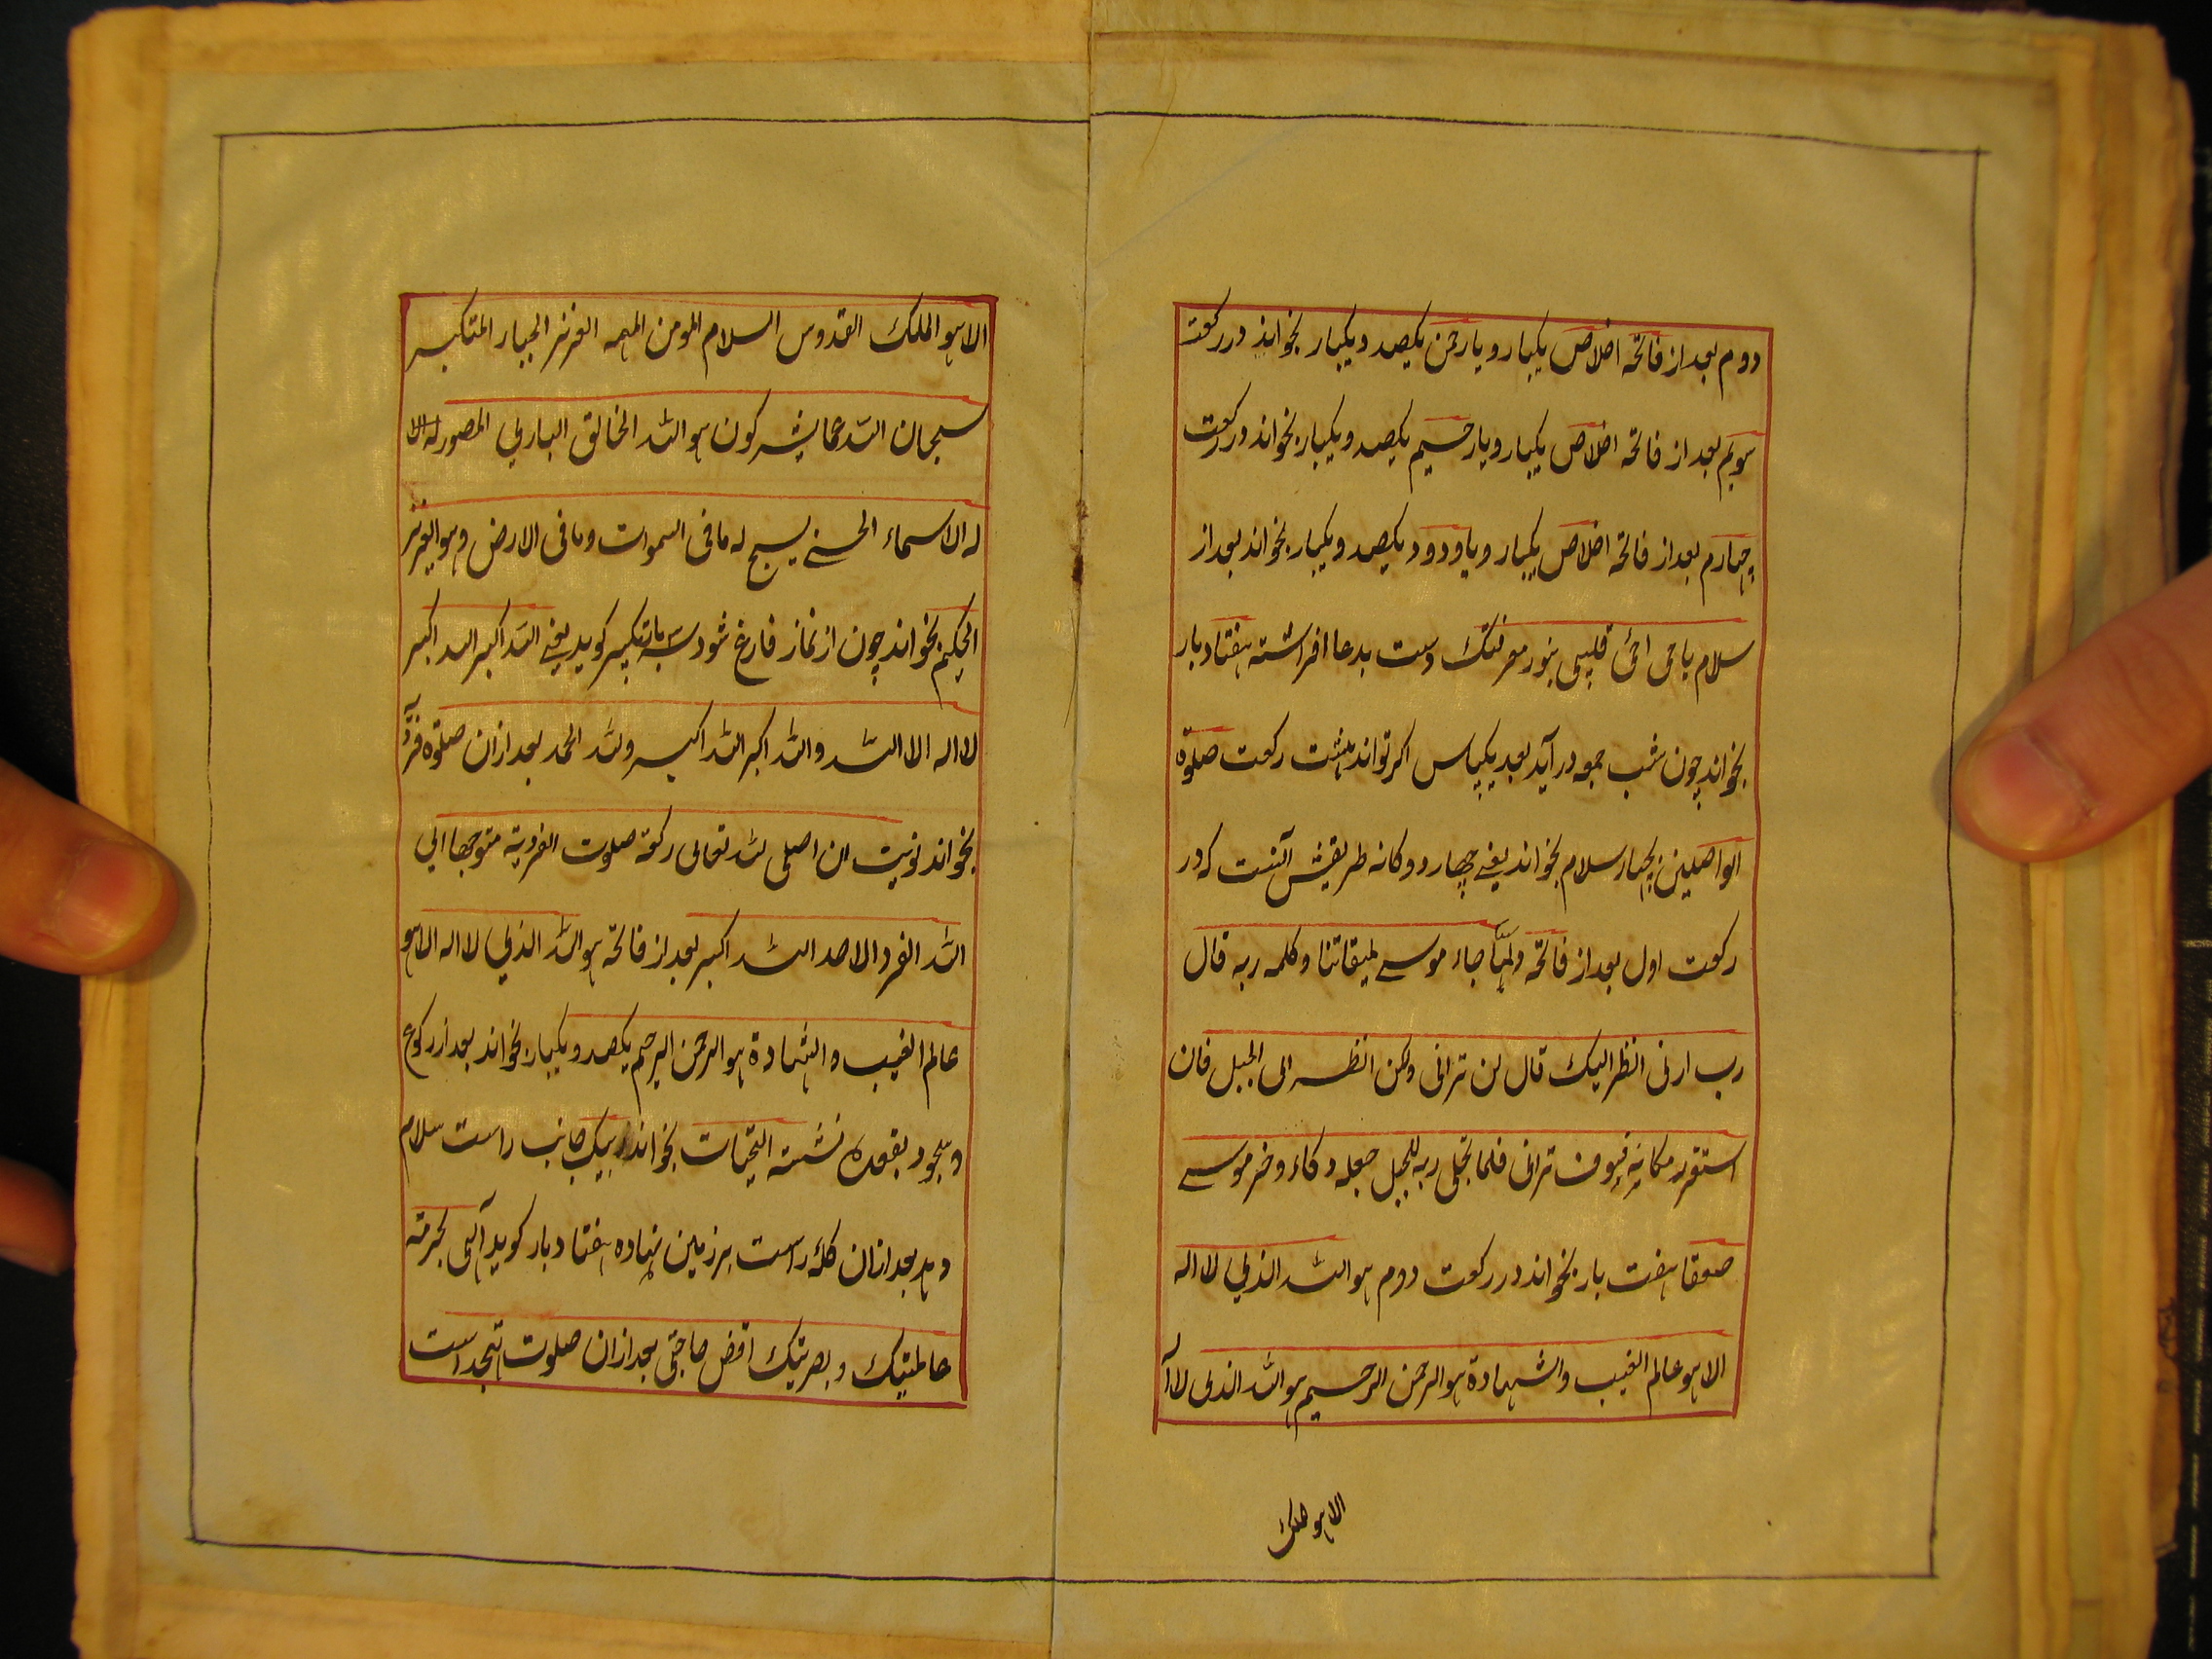 دوم بعد از فاتحه اخلاص یکبار و یا رحمن یکصد و یکبار بخواند در رکعت
سویم بعد از فاتحه اخلاص یکبار و یا رحیم یکصد و یکبار بخواند در رکعت
چہارم بعد از فاتحه اخلاص یکبار و یا ودود یکصد و یکبار بخواند بعد از
سلام یا حی احئ قلبی بنور معرفتک دست بدعا افراشته هفتاد بار
بخواند چون شب جمعه در آید بعد یکپاس اگر تواند هشت رکعت صلوة
الواصلین بچهار سلام بخواند یعنے چهار دوگانه طریقش آنست که در
رکعت اول بعد از فاتحه ولمّا جاء موسے لمیقاتنا و کلمه ربه قال
رب ارنی انظر الیک قال لن ترانی ولکن انظر الی الجبل فان
استقر مکانه فسوف ترانی فلما تجلی ربه للجبل جعله دکاء و خر موسے
صعقا هفت بار بخواند در رکعت دوم هو الله الذی لا اله
الا هو عالم الغیب و الشهادة هو الرحمن الرحیم هو الله الذی لا ا
الا هو ملک
الا هو الملک القدوس السلام المومن المهیمن العزیز الجبار المتکبر
سبحان الله عما یشرکون هو الله الخالق الباری المصور
له الاسماء الحسنے یسبح له ما فی السموات و ما فی الارض و هو العزیز
الحکیم بخواند چون از نماز فارغ شود سه بار تکبیر گوید یعنے الله اکبر الله اکبر
لا اله الا الله و الله اکبر الله اکبر و لله الحمد بعد از ان صلوة فردا
بخواند نویت ان اصلی لله تعالی رکعة صلوت الفردیة متوجها الی
الله الفرد الاحد الله اکبر بعد از فاتحه هو الله الذی لا اله الا هو
عالم الغیب و الشهادة هو الرحمن الرحیم یکصد و یکبار بخواند بعد از رکوع
و سجود بقعده نشسته التحیات بخواند بیک جانب راست سلام
دهد بعد از ان کله راست بر زمین نهاده هفتاد بار گوید آلهی بحرمة
حاطتیک و بصریتک اقض حاجتی بعد از ان صلوت تهجد است